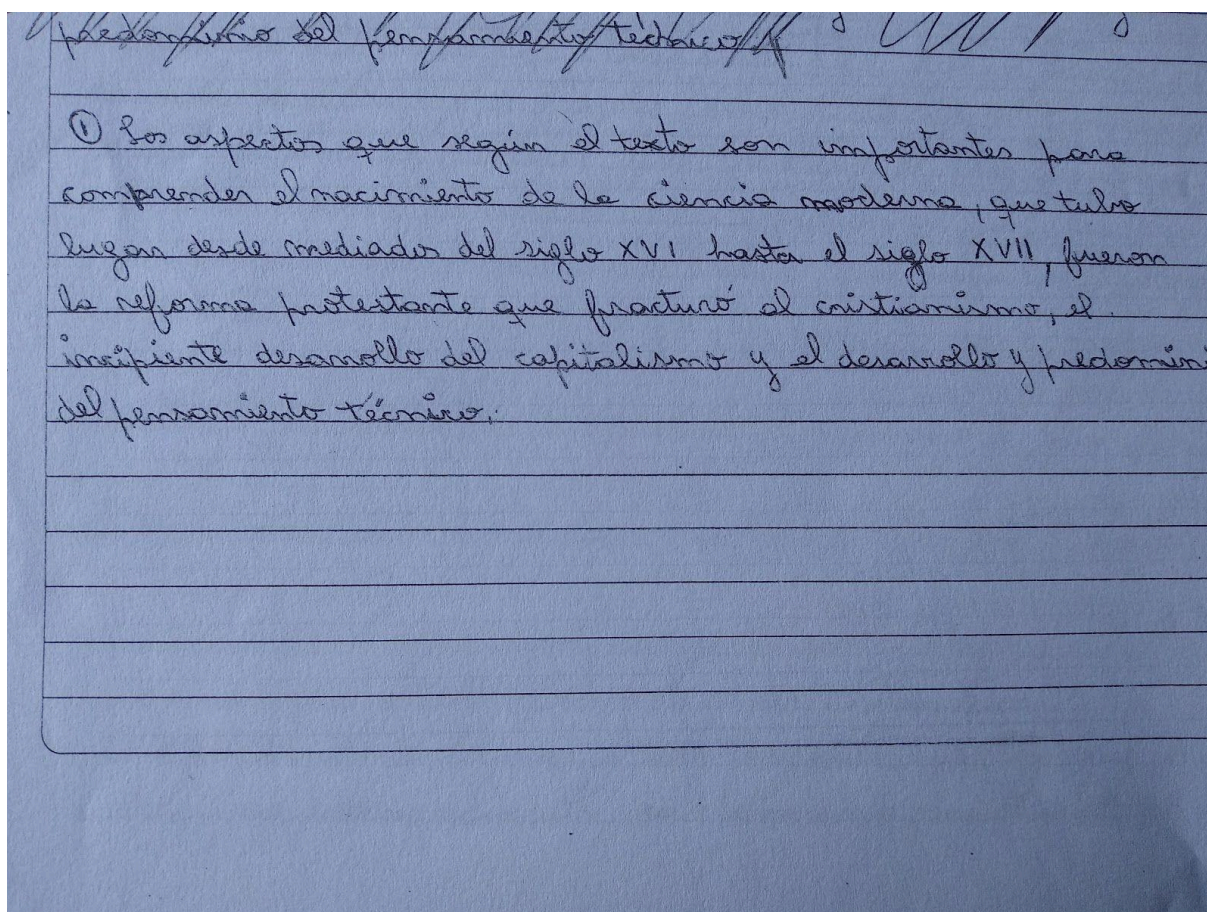 predominio del pensamiento técnico
① Los aspectos que según el texto son importantes para
comprender el nacimiento de la ciencia moderna, que tubo
lugar desde mediados del siglo XVI hasta el siglo XVII, fueron
la reforma protestante que fracturó al cristianismo, el
incipiente desarrollo del capitalismo y el desarrollo y predomini
del pensamiento técnico.